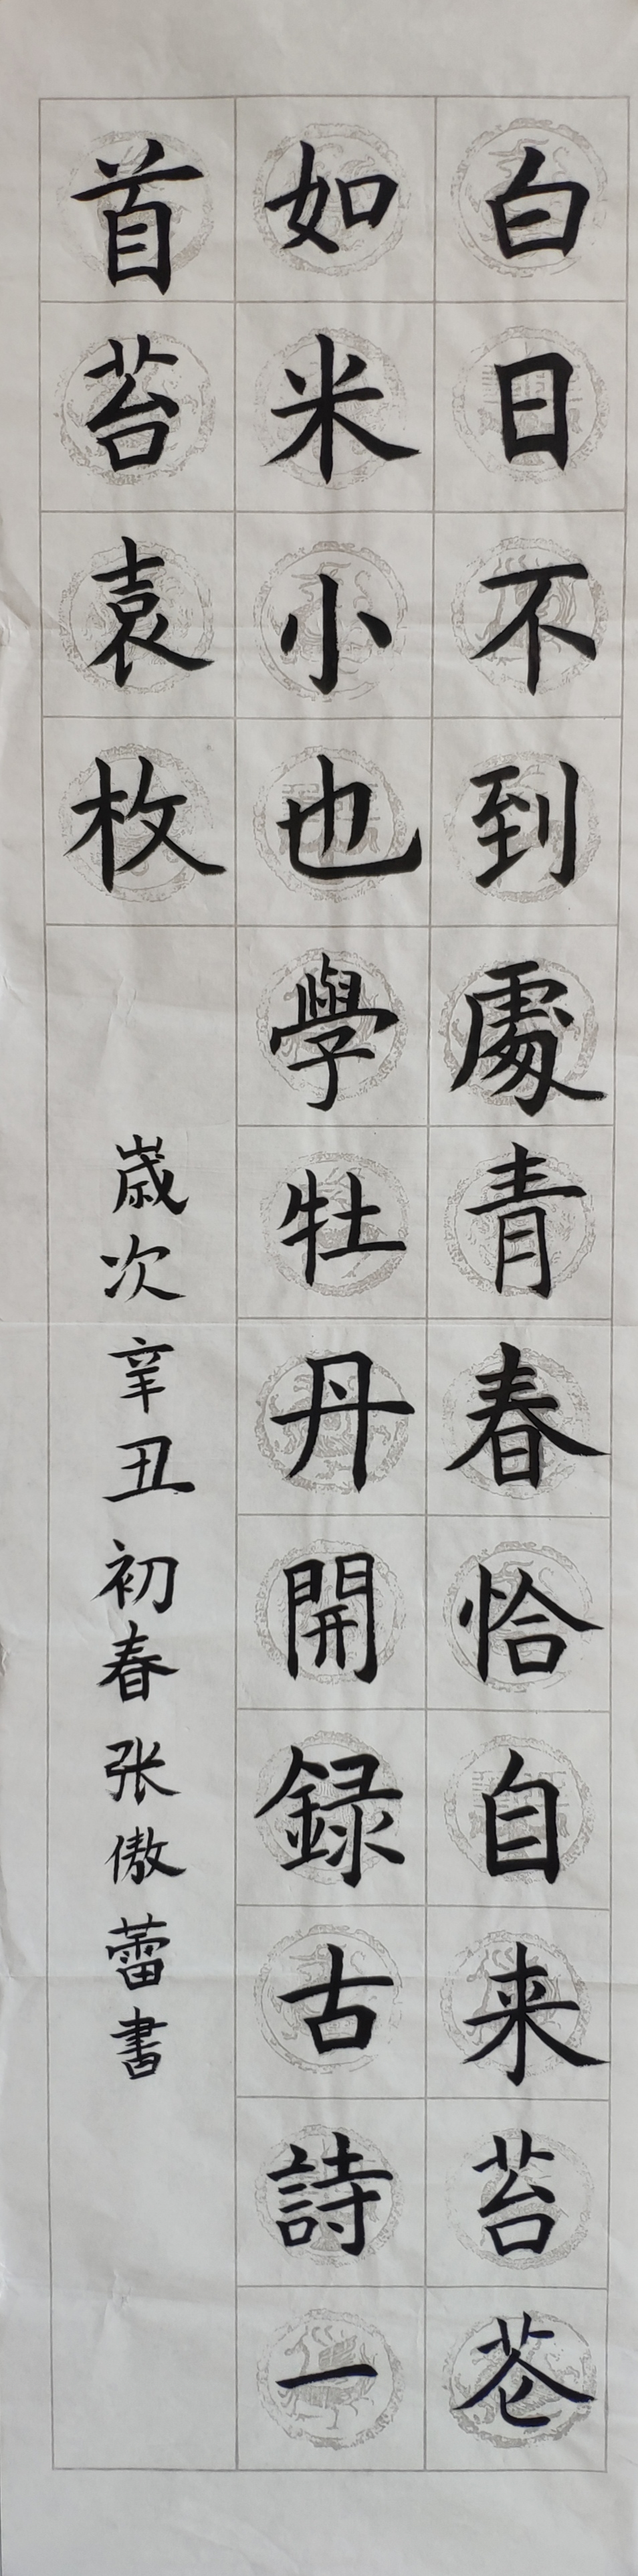 白日不到處青春恰自来苔花
如米小也學牡丹開録古詩一
首苔袁枚
歳次辛丑初春张傲蕾書